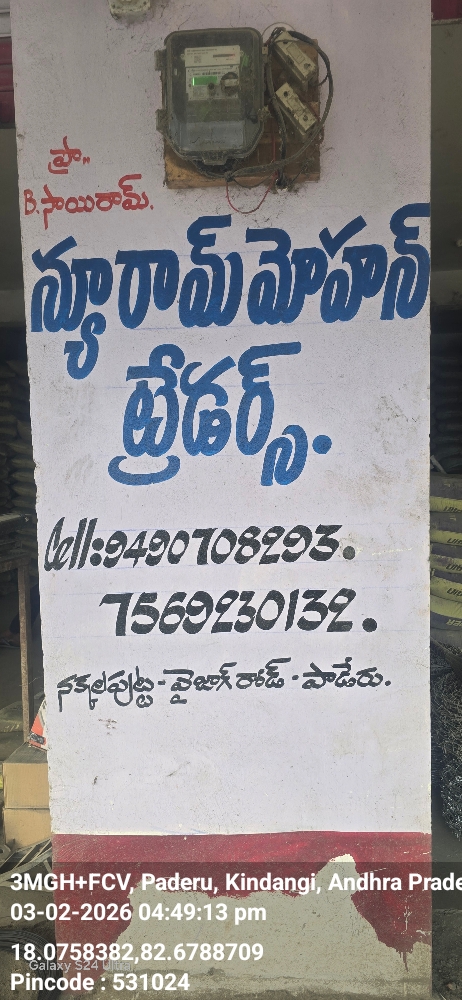 ప్రా,,
B.సాయిరామ్.
న్యూరామ్మోహన్
ట్రేడర్స్.
Cell:9490708293.
7569230132.
నక్కలపుట్ట-వైజాగ్ రోడ్·పాడేరు.
3MGH+FCV, Paderu, Kindangi, Andhra Prade
03-02-2026 04:49:13 pm
18.0758382,82.6788709
Galaxy S24 Ultra
Pincode : 531024